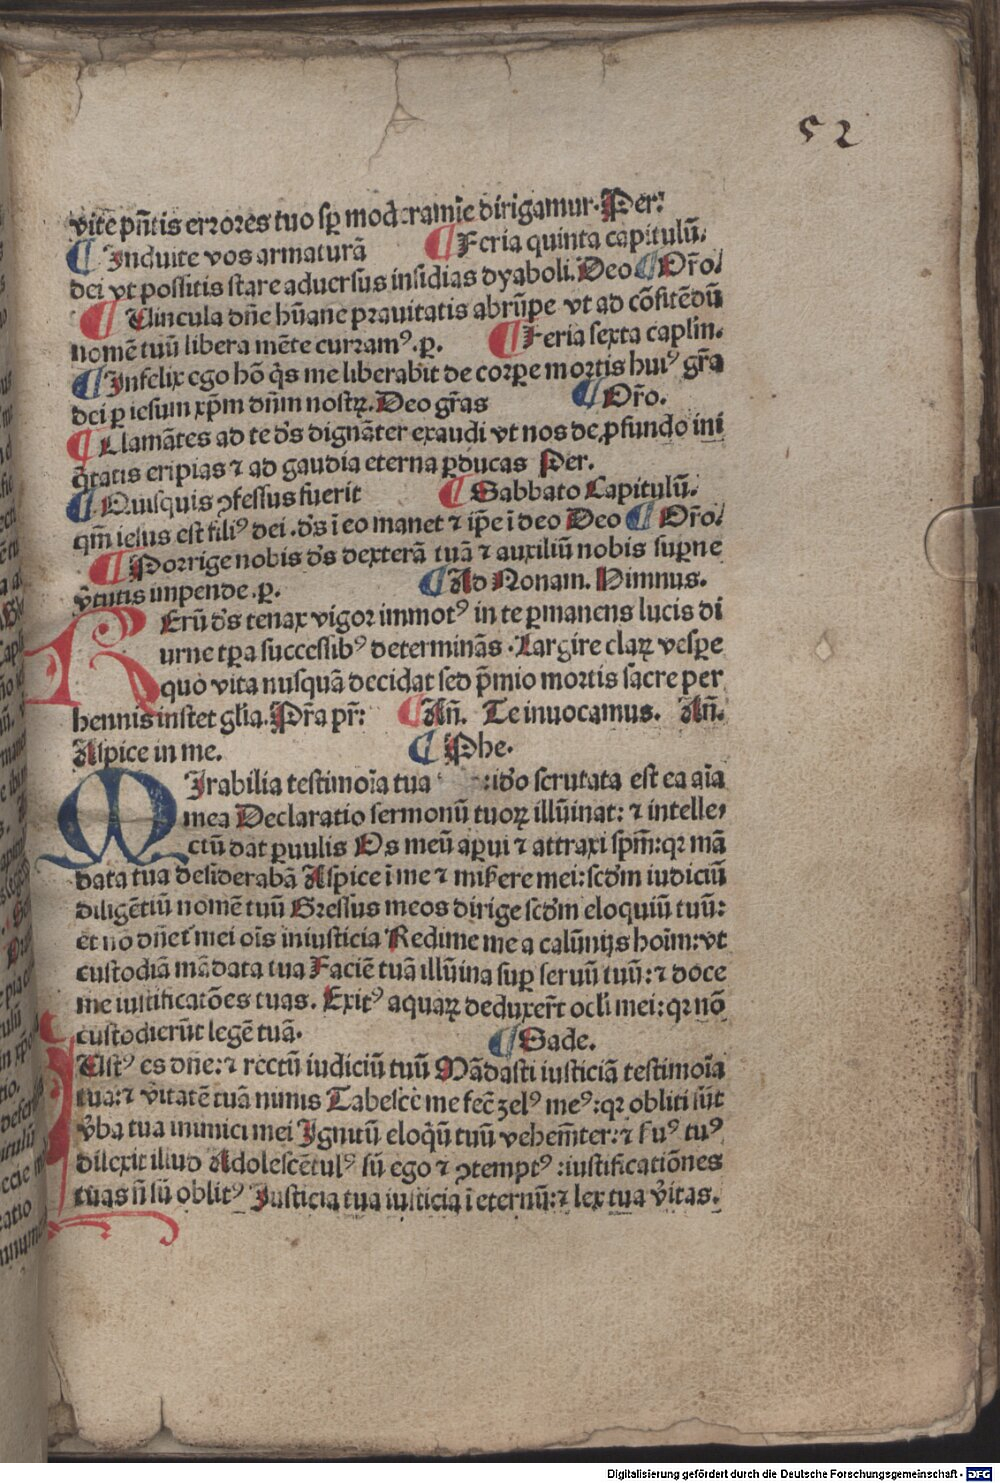 52
vite pñtis errores tuo sꝑ moderamīe dirigamur. Per:
¶ Induite vos armaturā ¶ Feria quinta capitulū.
dei vt possitis stare aduersus insidias dyaboli. Deo ¶ Or̄o.
¶ Uincula dn̄e hūane prauitatis abrūpe vt ad cōfitēdū
nomē tuū libera mēte curramꝰ. p. ¶ Feria sexta caplm.
¶ Infelix ego hō q̄s me liberabit de corpe mortis huiꝰ gr̄a
dei ꝑ iesum xp̄m dn̄m nostꝝ. Deo gr̄as ¶ Or̄o.
¶ Clamātes ad te ds̄ dignāter exaudi vt nos de ꝓfundo ini
q̄tatis eripias ⁊ ad gaudia eterna ꝑducas Per.
¶ Quisquis ꝯfessus fuerit ¶ Sabbato Capitulū.
qm̄ iesus est filiꝰ dei .ds̄ ī eo manet ⁊ ip̄e ī deo Deo ¶ Or̄o.
¶ Porrige nobis ds̄ dexterā tuā ⁊ auxiliū nobis suꝑne
v̄tutis impende .p. ¶ Ad Nonam. Himnus.
RErū ds̄ tenax vigor immotꝰ in te ꝑmanens lucis di
urne tꝑa successibꝰ determinās. Largire claꝝ vespe
quo vita nusquā decidat sed p̄mio mortis sacre per
hennis instet gl̄ia. Pr̄a pr̄: ¶ Añ. Te inuocamus. Añ.
Aspice in me. ¶ Phe.
MIrabilia testimoīa tua :ido scrutata est ea aīa
mea Declaratio sermonū tuoꝝ illūinat: ⁊ intelle,
ctū dat ꝑuulis Os meū aꝑui ⁊ attraxi spm̄: qꝛ mā
data tua desiderabā Aspice ī me ⁊ misere mei: scdm iudiciū
diligētiū nomē tuū Gressus meos dirige scdm eloquiū tuū:
et nō dn̄et mei oīs iniusticia Redime me a calūnijs hoīm: vt
custodiā mādata tua Faciē tuā illūina suꝑ seruū tuū: ⁊ doce
me iustificatōes tuas. Exitꝰ aquaꝝ deduxer̄t ocl̄i mei: qꝛ nō
custodierūt legē tuā. ¶ Sade.
IUstꝰ es dn̄e: ⁊ rectū iudiciū tuū Mādasti iusticiā testimoīa
tua: ⁊ v̄itatē tuā nimis Tabescē me fec̄ zelꝰ meꝰ: qꝛ obliti sūt
v̄ba tua inimici mei Ignitū eloq̄ū tuū vehem̄ter: ⁊ suꝰ tuꝰ
dilexit illud Adolescētulꝰ sū ego ⁊ ꝯtemptꝰ: iustificatiōnes
tuas nō sū oblitꝰ Iusticia tua iusticia ī eternū: ⁊ lex tua v̄itas.
Digitalisierung gefördert durch die Deutsche Forschungsgemeinschaft - DFG